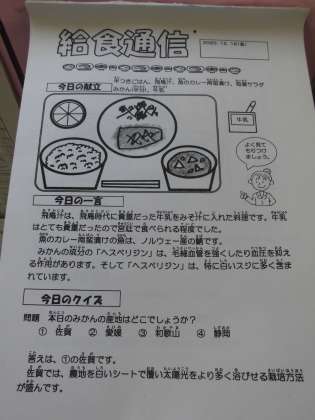 給食通信
今日の献立
麦つきごはん、飛鳥汁、魚のカレー南蛮漬け、和風サラダ
みかん(半分)、牛乳
牛乳
よく見て
もりつけ
ましょう。
今日の一言
飛鳥汁は、飛鳥時代に貴重だった牛乳をみそ汁に入れた料理です。牛乳
はとても貴重だったので宮廷で食べられる程度でした。
魚のカレー南蛮漬けの魚は、ノルウェー産の鯖です。
みかんの成分の「ヘスペリジン」は、毛細血管を強くしたり血圧を抑え
る作用があります。そして「ヘスペリジン」は、特に白いスジに多く含ま
れています。
今日のクイズ
問題 本日のみかんの産地はどこでしょうか？
① 佐賀 ② 愛媛 ③ 和歌山 ④ 静岡
答えは、①の佐賀です。
佐賀では、農地を白いシートで覆い太陽光をより多く浴びせる栽培方法
が盛んです。